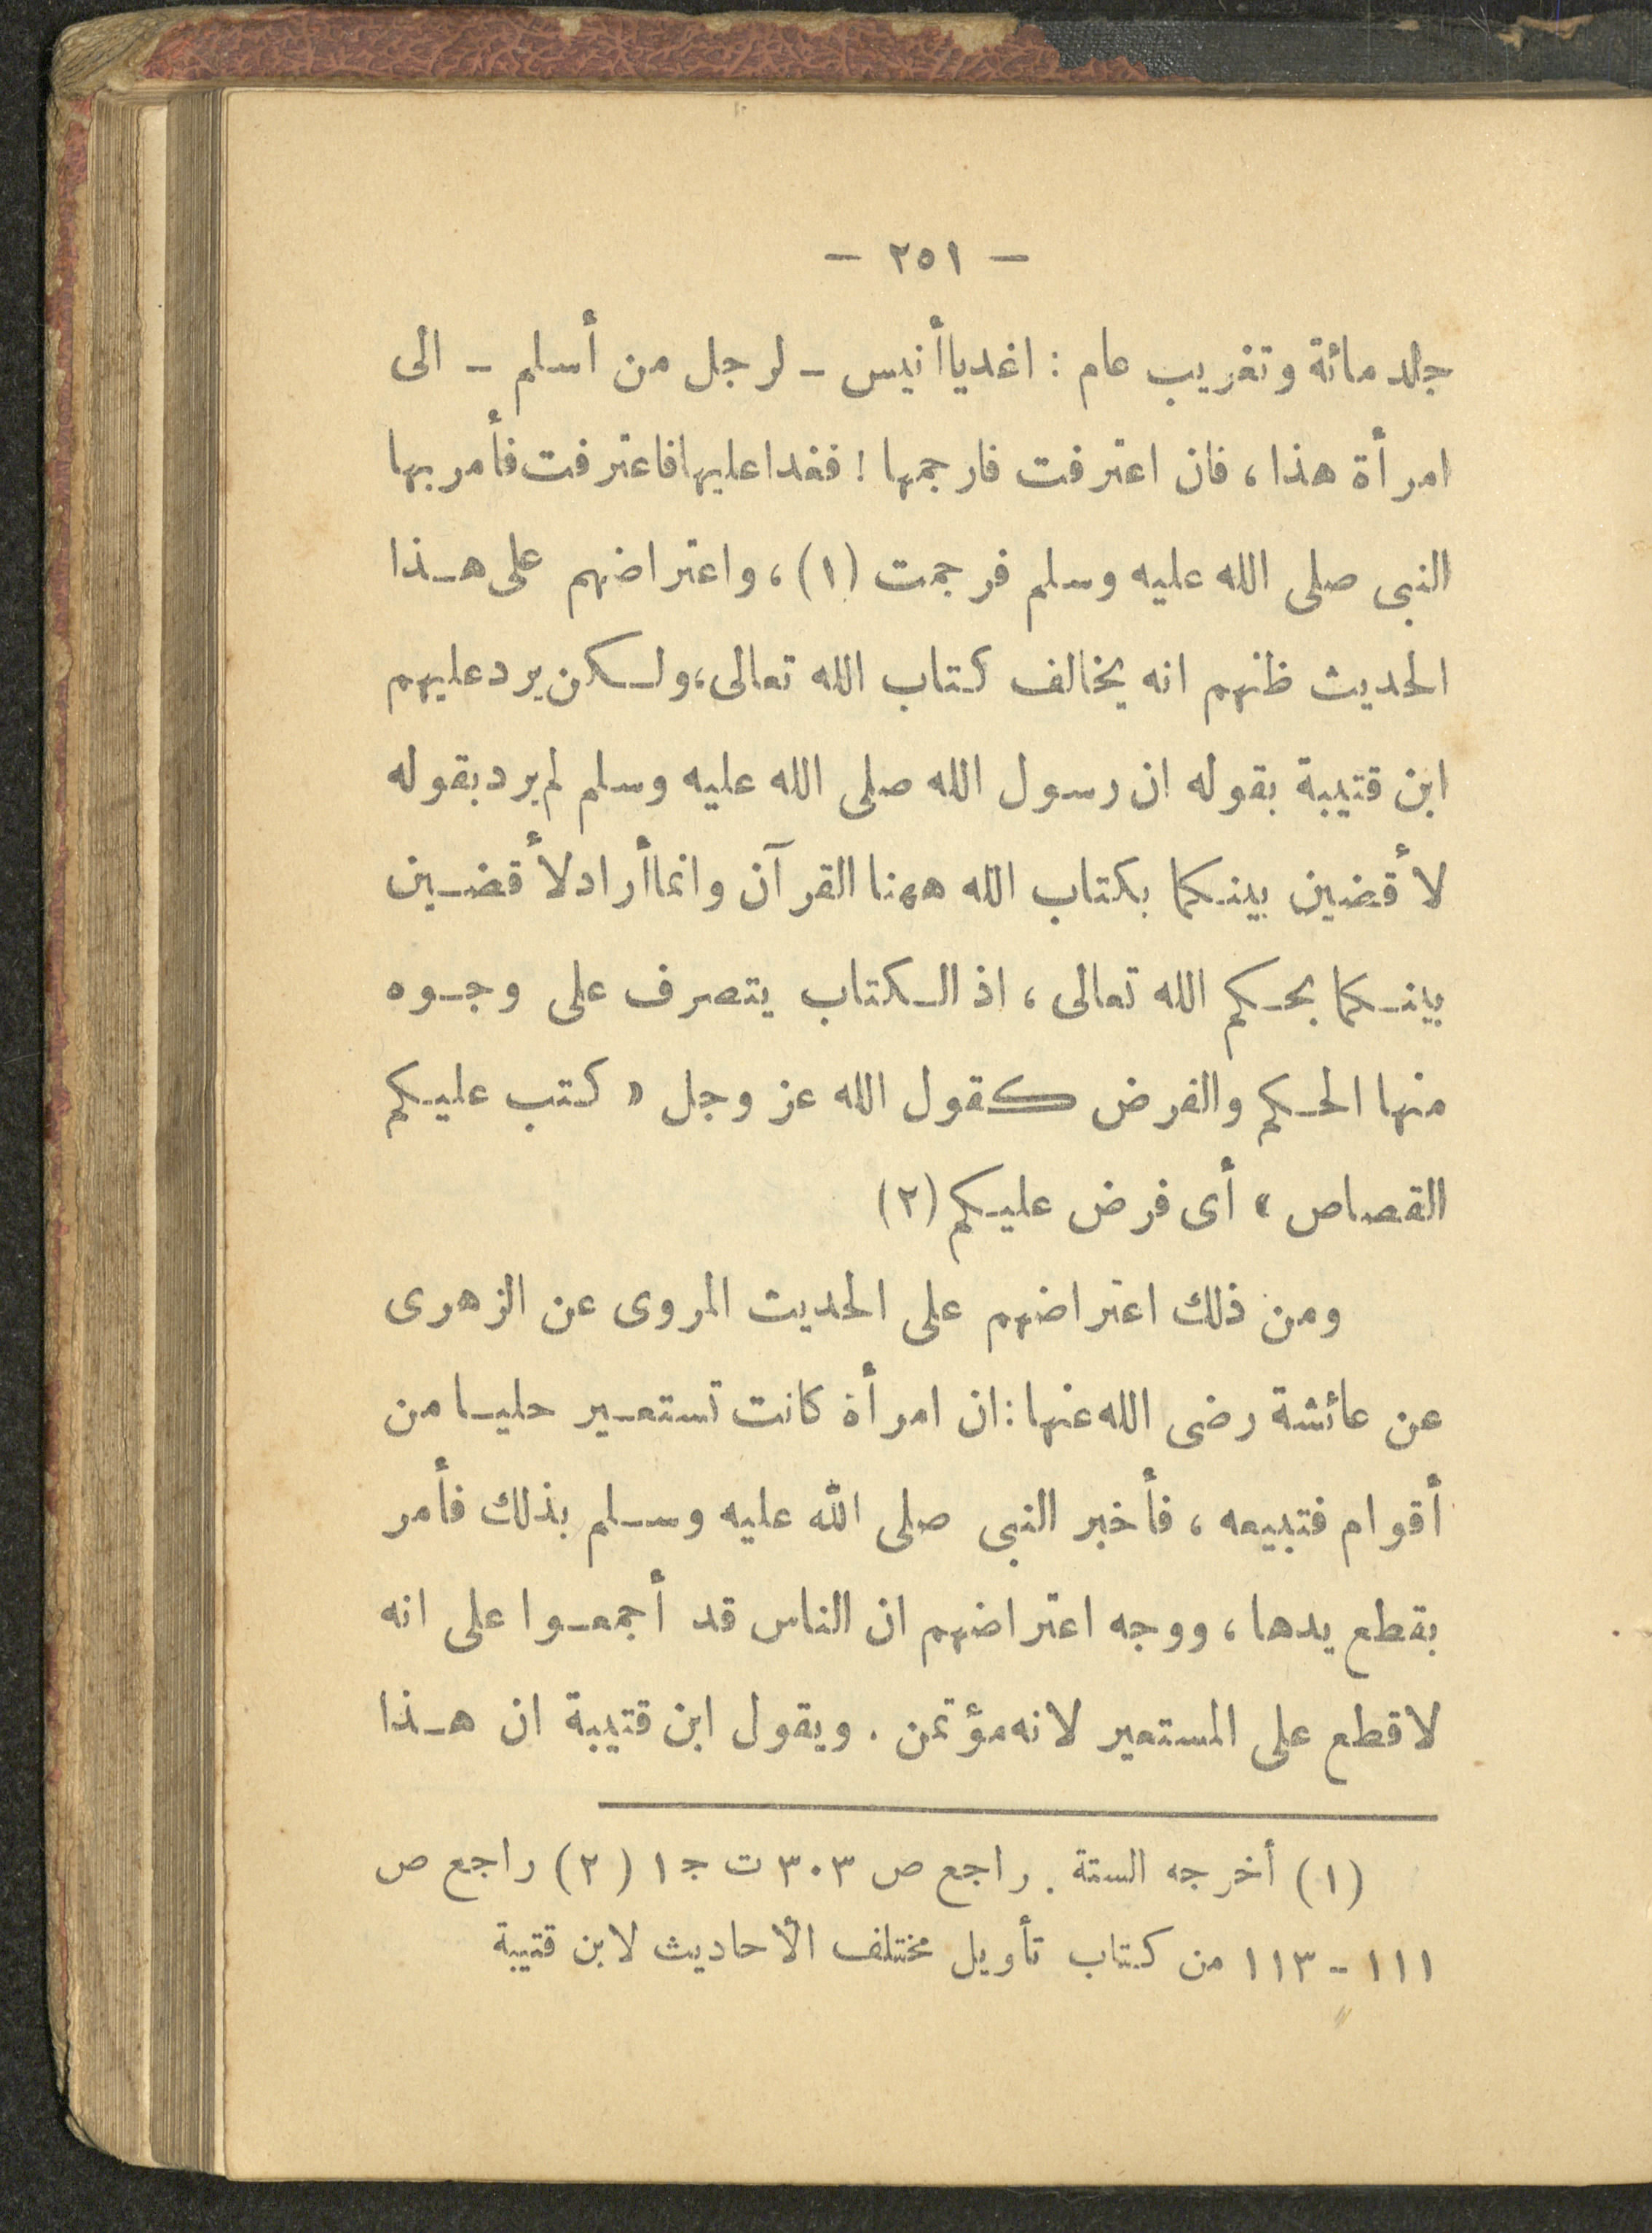 — ٢٥١ —
جلد مائة وتغريب عام : اغد يا أنيس – لرجل من أسلم – الى
امرأة هذا ، فان اعترفت فارجمها ! فغدا عليها فاعترفت فأمر بها
النبى صلى الله عليه وسلم فرجمت (١) ، واعتراضهم على هـذا
الحديث ظنهم انه يخالف كتاب الله تعالى ، ولـكن يرد عليهم
ابن قتيبة بقوله ان رسول الله صلى الله عليه وسلم لم يرد بقوله
لأقضين بينـكما بكتاب الله ههنا القرآن وانما أراد لأقضـين
بينـكما بحـكم الله تعالى ، اذ الـكتاب يتصرف على وجـوه
منها الحـكم والفرض كقول الله عز وجل « كتب عليـكم
القصاص » أى فرض عليـكم (٢)
ومن ذلك اعتراضهم على الحديث المروى عن الزهرى
عن عائشة رضى الله عنها : ان امرأة كانت تستعـير حليـا من
أقوام فتبيعه ، فأخبر النبى صلى الله عليه وسـلم بذلك فأمر
بقطع يدها ، ووجه اعتراضهم ان الناس قد أجمعـوا على انه
لا قطع على المستعير لانه مؤتمن . ويقول ابن قتيبة ان هـذا
(١) أخرجه الستة . راجع ص ٣٠٣ ت جـ ١ (٢) راجع ص
١١١ - ١١٣ من كتاب تأويل مختلف الأحاديث لابن قتيبة